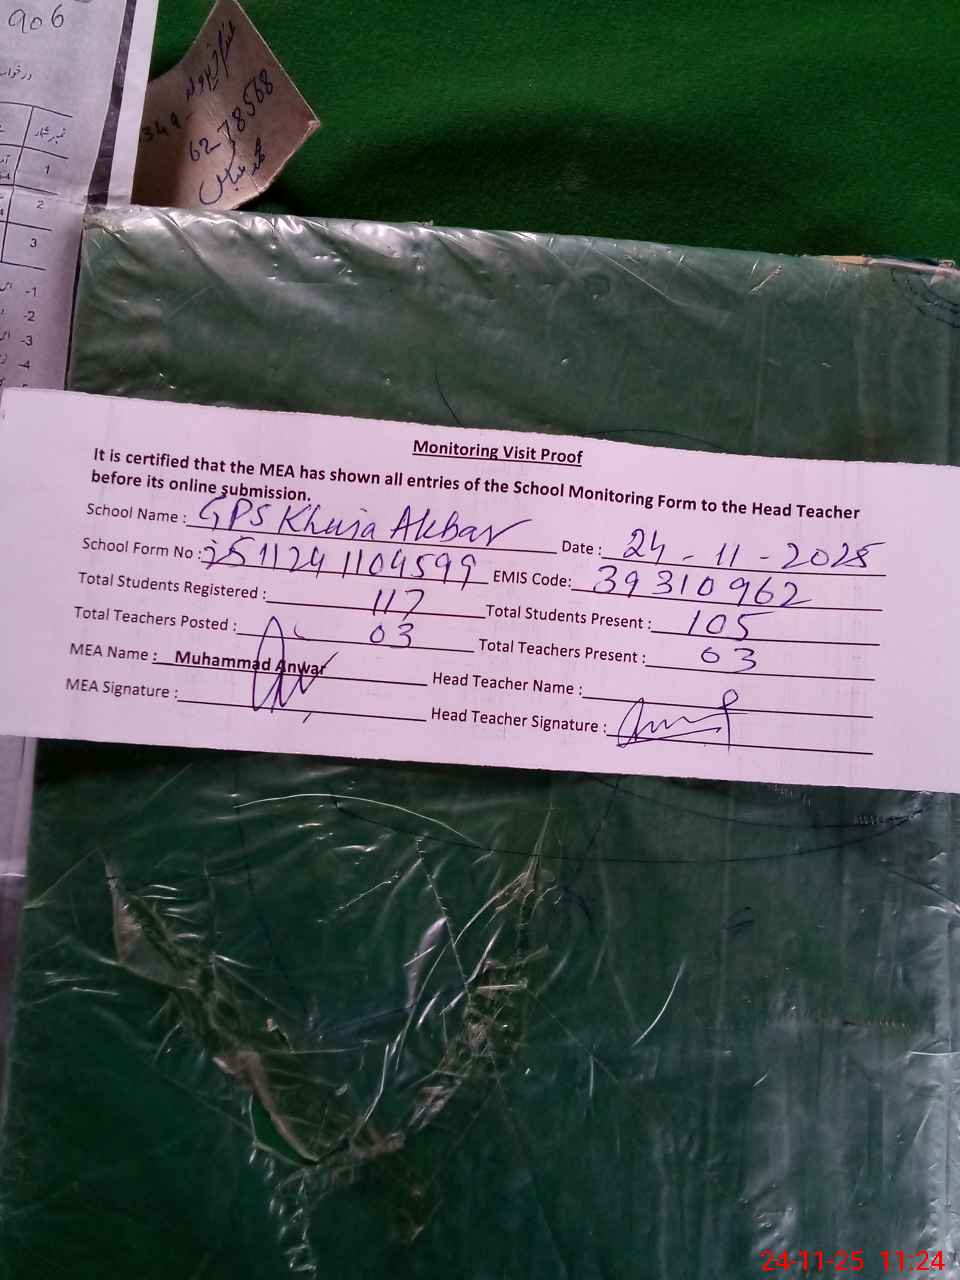 906
درخواست
نمبر شمار
1
2
3
-1
-2
-3
-4
62-78568
Monitoring Visit Proof
It is certified that the MEA has shown all entries of the School Monitoring Form to the Head Teacher
before its online submission.
School Name : GPS Khuja Akbar Date : 24-11-2025
School Form No : 251124 1104599 EMIS Code: 39310962
Total Students Registered : 117 Total Students Present : 105
Total Teachers Posted : 03 Total Teachers Present : 03
MEA Name : Muhammad Anwar Head Teacher Name :
MEA Signature : Head Teacher Signature :
24-11-25 11:24